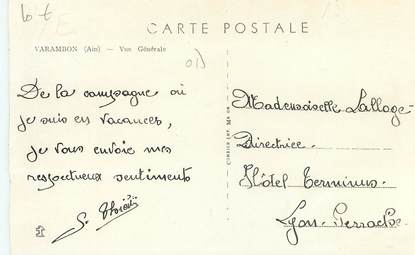 lot
CARTE POSTALE
VARAMBON (Ain) — Vue Générale
01)
De la campagne où
je suis en vacances,
je vous envoie mes
respectueux sentiments
Mademoiselle Lalloge
Directrice.
Hôtel Terminus.
Lyon-Perrache.